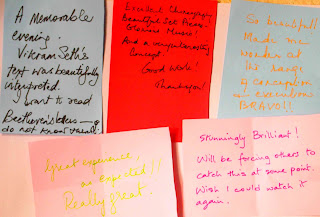 A Memorable
evening.
Vikram Seth's
text was beautifully
interpreted.
I want to read
Beethoven's letters
do not know
Excellent Choreography
Beautiful Set Pieces
Glorious Music!
And a very interesting
Concept.
Good work!
Thank you!
So beautiful!
Made me
wonder at
the
conception
execution
BRAVO!!
Great experience,
as expected!!
Really great.
Stunningly Brilliant!
Will be forcing others to
catch this at some point.
Wish I could watch it
again.